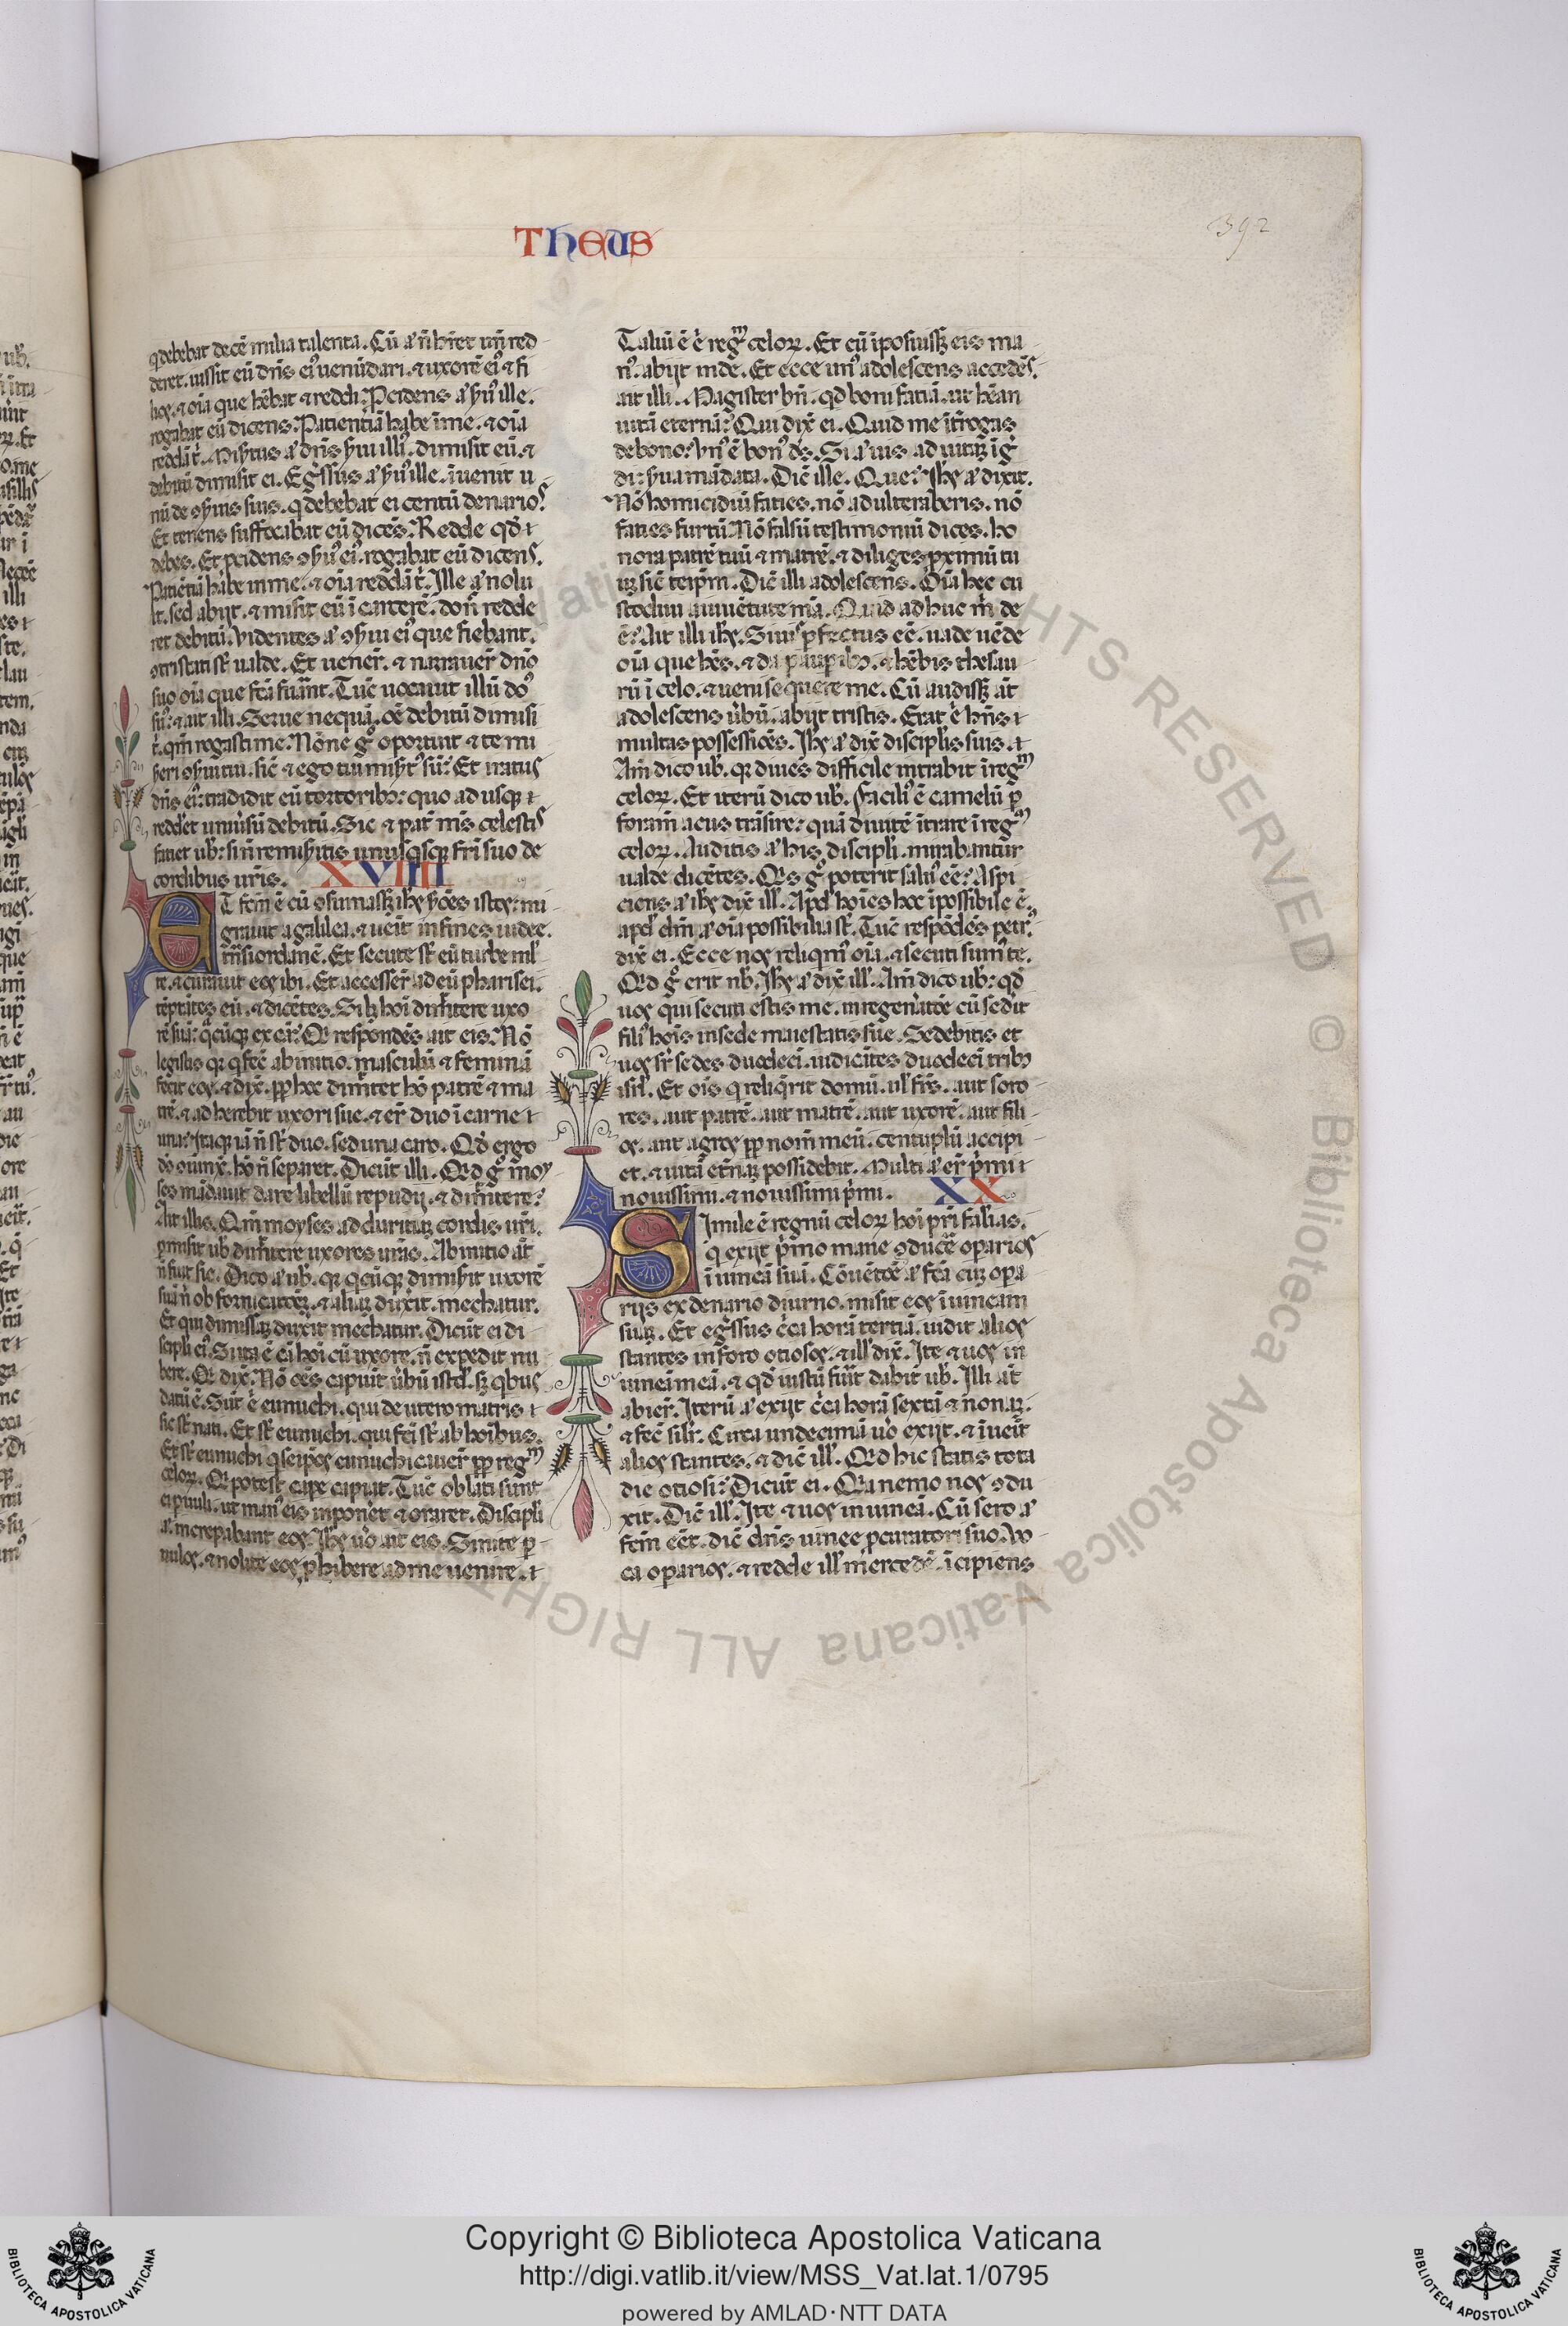 Theus
392
qdebebat decē milia talenta. Cū a' ñ hr̄et un̄ red
deret. iussit eū dn̄s ei' uenūdari. ⁊ uxorē ei' ⁊ fi
lios. ⁊ oīa que hēbat ⁊ reddi. Pcidens a' ẜuꝰ ille.
rogabat eū dicens. Patientiā habe ī me. ⁊ oīa
reddā t̄. Misertus a' dn̄s ẜui illiꝰ. dimisit eū. ⁊
debitū dimisit ei. Egr̄ssus a' ẜuꝰ ille. īuenit u
nū de ꝯẜuis suis. q debebat ei centū denarios.
Et tenens suffocabat eū dicēs. Redde qd̄
debes. Et pcidens ꝯẜuꝰ eiꝰ. rogabat eū dicens.
Patiētiā habe in me. ⁊ oīa reddā t̄. Ille a' nolu
it. sed abijt. ⁊ misit eū ī carcerē. don̄ redde
ret debitū. Videntes a' ꝯẜui eiꝰ que fiebant.
ꝯtristati st̄ ualde. Et uener̄. ⁊ narrauer̄ dn̄o
suo oīa que fc̄a fuān̄t. Tūc uocauit illū dō
suꝰ. ⁊ ait illi. Serue nequā. oē debitū dimisi
t̄. qm̄ rogasti me. Nōne g̊ oportuit ⁊ te mi
sereri ꝯẜui tui. sic̄ ⁊ ego tui misertꝰ sū. Et iratus
dn̄s eiꝰ. tradidit eū tortoribꝫ. quo ad usqꝫ
redd'et uniūsū debitū. Sic ⁊ pat̄ ms̄ celestis
faciet ub̄. si ñ remiseritis unusqsqꝫ fr̄i suo de
cordibus ur̄is. XVIIII
ET fc̄m ē cū ꝯsumassꝫ ih̄s ẜmōes istos. mi
grauit a galilea. ⁊ ueīt in fines iudee.
tr̄nsiordanē. Et secute st̄ eū turbe ml̄
te. ⁊ curauit eos ibi. Et accesser̄ ad eū pharisei.
tēptātes eū. ⁊ dicētes. Si lꝫ hoī dimittere uxo
rē suā. q̄cūqꝫ ex cā. Qi respondēs ait eis. Nō
legistis qꝛ q fēc ab initio. masculū ⁊ feminā
fecit eos. ⁊ dix̄. ꝓp hoc dimittet hō patrē ⁊ ma
trē. ⁊ adherebit uxori sue. ⁊ er̄ duo ī carne
una. Itaqꝫ iā ñ st̄ duo. sed una caro. Qd̄ ergo
dō ꝯiūnx̄. hō ñ separet. Dicūt illi. Qid g̊ moy
ses mādauit dare libellū repudij. ⁊ dimittere.
Ait illis. Qm̄ moyses ad duritiaꝫ cordis ur̄i.
ꝑmisit ub̄ dimittere uxores ur̄as. Ab initio at̄
ñ fuit sic. Dico a' ub̄. qꝛ qcūqꝫ dimiserit uxorē
suā ñ ob fornicatōeꝫ. ⁊ aliaꝫ duxit. mechatur.
Et qui dimissaꝫ duxit mechatur. Dicūt ei di
scipli eiꝰ. Si ita ē cā hoī cū uxore. ñ expedit nu
bere. Qi dix̄. Nō oēs capiūt ūbū istd̄. sꝫ qbus
datū ē. Sūt ē eunuchi. qui de utero matris
sic st̄ nati. Et st̄ eunuchi. qui fc̄i st̄ ab hoībus.
Et st̄ eunuchi q seipos eunuchizauer̄ ꝓp regm̄
celoꝝ. Qi potest cape capiat. Tūc oblati sunt
ei puuli. ut manꝰ eis inponer̄t ⁊ oraret. Discipli
a' increpabant eos. Ih̄s uo ait eis. Sinite p
uulos. ⁊ nolite eos ꝓhibere ad me uenire.
Taliū ē ē regm̄ celoꝝ. Et cū īposuissꝫ eis ma
nꝰ. abijt inde. Et ecce unꝰ adolescens accedēs.
ait illi. Magister bn̄. qd̄ boni faciā. ut hēan
uitā eternā. Qui dix̄ ei. Quid me īt̄rogas
de bono. Vnꝰ ē bonꝰ dꝰs. Si a' uis ad uitaꝫ ig̊
di. ẜua mādata. Dic̄ ille. Que. Ih̄s a' dixit.
Nō homicidiū facies. nō adulteraberis. nō
facies furtū. Nō falsū testimoniū dices. ho
nora patrē tuū ⁊ matrē. ⁊ diliges ꝓximū tu
uꝫ sic̄ teip̄m. Dic̄ illi adolescens. Oīa hec cu
stodiui a iuuētute mā. Quid adhuc m̄ de
ē. Ait illi ih̄s. Si uis pfectus eē. uade uēde
oīa que hēs. ⁊ da paupibꝫ. ⁊ hēbis thesau
rū ī celo. ⁊ ueni sequere me. Cū audissꝫ at̄
adolescens ūbū. abijt tristis. Erat ē hn̄s
multas possessiōes. Ih̄s a' dix̄ disciplis suis.
Am̄ dico ub̄. qꝛ diues difficile intrabit ī regm̄
celoꝝ. Et iterū dico ub̄. Faciliꝰ ē camelū p
foram̄ acus trāsire. quā diuitē ītrare ī regm̄
celoꝝ. Auditis a' his discipli. mirabantur
ualde dicētes. Qis g̊ poterit saluꝰ eē. Aspi
ciens a' ih̄s dix̄ ill'. Apd' hoīes hoc īpossibile ē.
apd' dm̄ a' oīa possibilia st̄. Tūc respōdēs petrꝰ.
dix̄ ei. Ecce nos reliqmꝰ oīa. ⁊ secuti sumꝰ te.
Qid g̊ erit nb̄. Ih̄s a' dix̄ ill'. Am̄ dico ub̄. qd̄
uos qui secuti estis me. in regen'atōe cū sedit
filiꝰ hoīs in sede maiestatis sue. Sedebitis et
uos sr̄ sedes duodecī. iudicātes duodecī tribꝫ
isrl̄. Et oīs q reliqrit domū. ul' fr̄s. aut soro
res. aut patrē. aut matrē. aut uxorē. aut fili
os. aut agros ꝓp nom̄ meū. centuplū accipi
et. ⁊ uitā et̄naꝫ possidebit. Multi a' er̄ pmi
nouissimi. ⁊ nouissimi pmi. XX
SImile ē regnū celoꝝ hoī pr̄i fal'ias.
q exijt pmo mane ꝯducē oparios
ī uineā suā. Cōuētōe a' fc̄a cuꝫ opa
rijs ex denario diurno. misit eos ī uineam
suaꝫ. Et egr̄ssus cc̄a horā tertiā. uidit alios
stantes in foro otiosos. ⁊ ill' dix̄. Ite ⁊ uos in
uineā meā. ⁊ qd̄ iustū fūit dabit ub̄. Illi at̄
abier̄. Iterū a' exijt cc̄a horā sextā ⁊ nonaꝫ.
⁊ fēc silr̄. Circa undecimā uo exijt. ⁊ īueīt
alios stantes. ⁊ dic̄ ill'. Qid hic statis tota
die otiosi. Dicūt ei. Qia nemo nos ꝯdu
xit. Dic̄ ill'. Ite ⁊ uos in uineā. Cū sero a'
fc̄m eēt. dic̄ dn̄s uinee pcuratori suo. Vo
ca oparios. ⁊ redde ill' mercedē. īcipiens
Copyright © Biblioteca Apostolica Vaticana
http://digi.vatlib.it/view/MSS_Vat.lat.1/0795
powered by AMLAD·NTT DATA
BIBLIOTECA APOSTOLICA VATICANA
BIBLIOTECA APOSTOLICA VATICANA
ALL RIGHTS RESERVED © Biblioteca Apostolica Vaticana